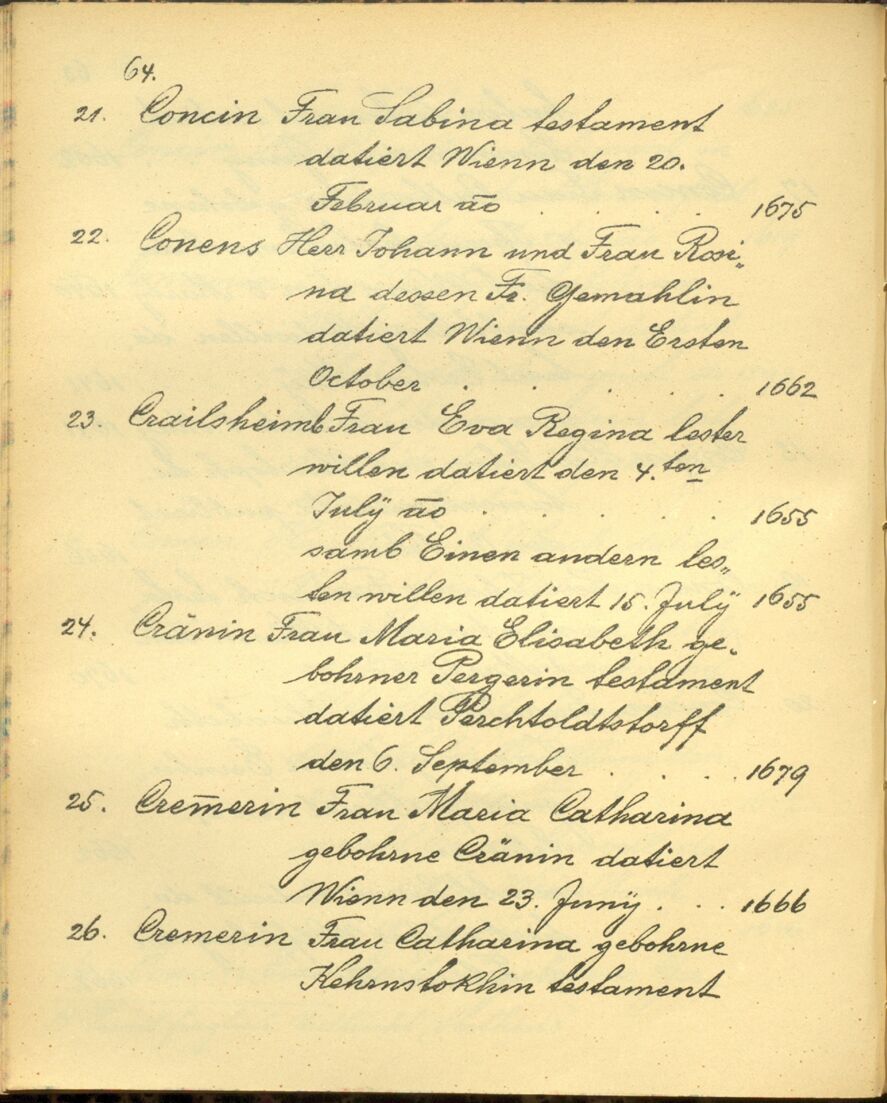 64.
21. Concin Frau Sabina testament
datiert Wienn den 20.
Februar āo . . . . 1675
22. Conens Herr Johann und Frau Rosi„
na dessen Fr. Gemahlin
datiert Wienn den Ersten
October . . . . . 1662
23. Crailsheimb Frau Eva Regina lester
willen datiert den 4.ten
Julÿ āo . . . . . . 1655
samb Einen andern les„
ten willen datiert 15. Julÿ 1655
24. Cränin Frau Maria Elisabeth ge„
bohrner Pergerin testament
datiert Perchtoldtstorff
den 6. September . . . . 1679
25. Crem̄erin Frau Maria Catharina
gebohrne Cränin datiert
Wienn den 23. Junÿ . . . 1666
26. Cremerin Frau Catharina gebohrne
Kehrnstokhin testament